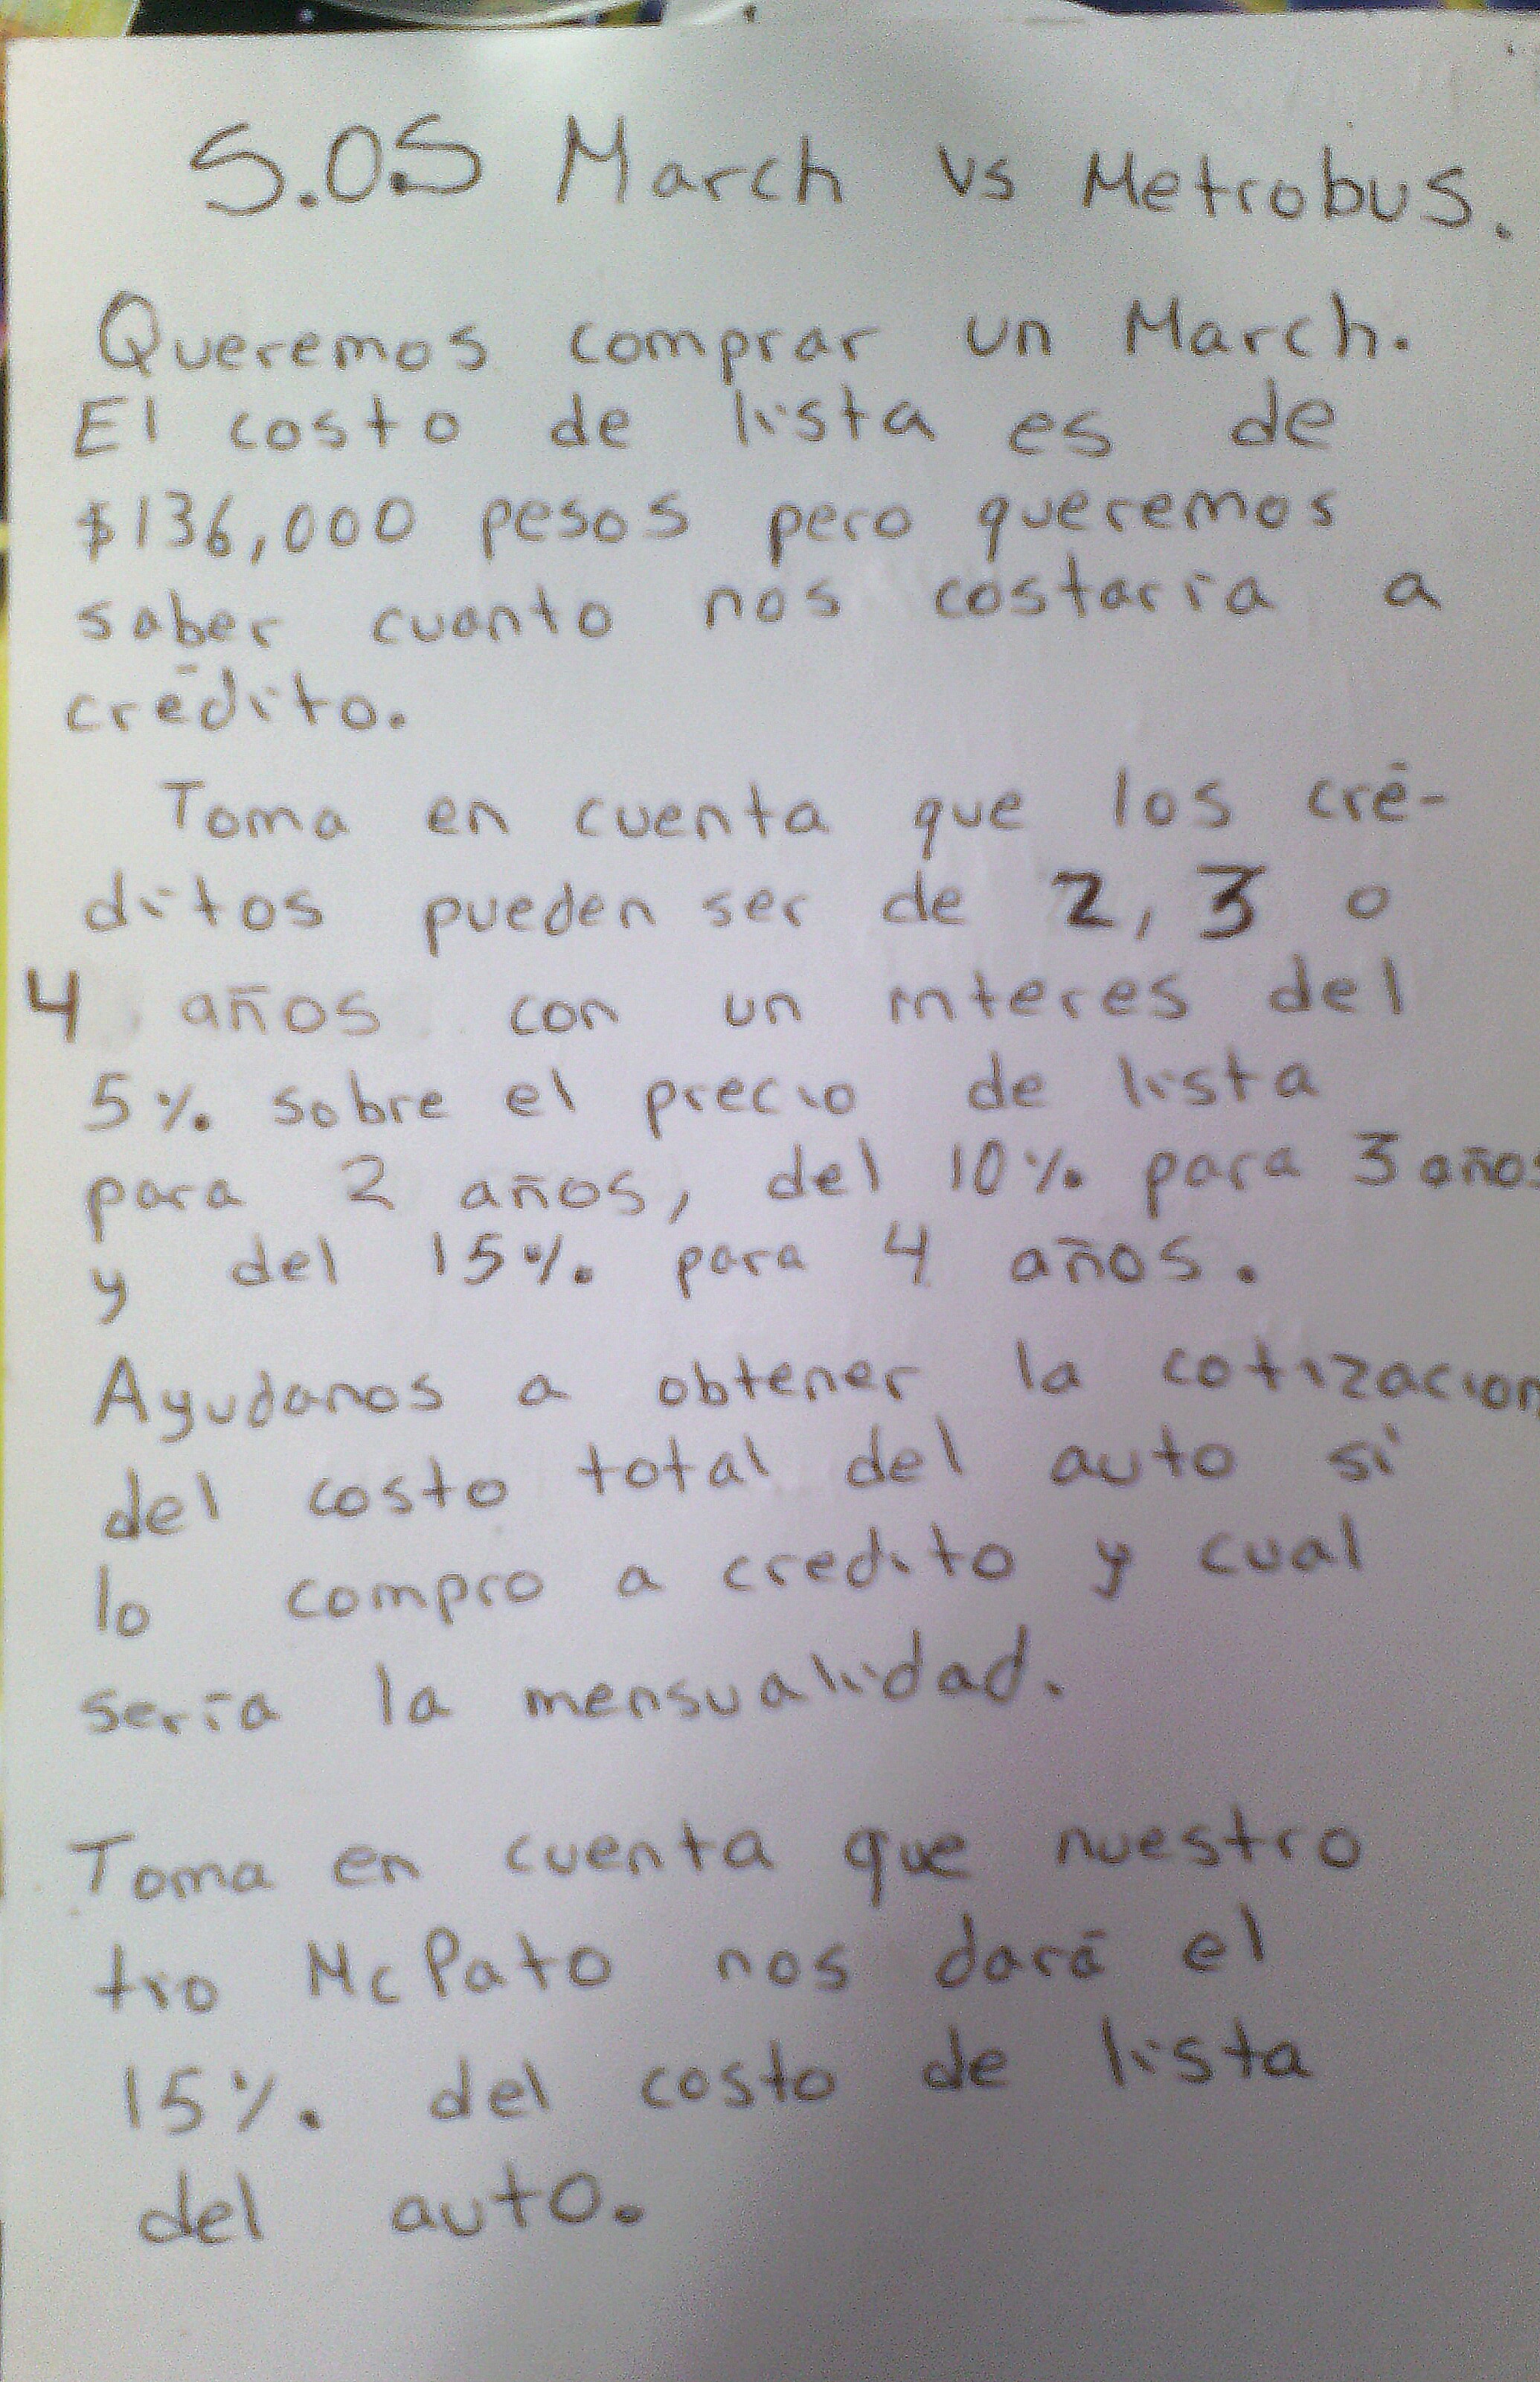 S.O.S March vs Metrobus.
Queremos comprar un March.
El costo de lista es de
$136,000 pesos pero queremos
saber cuanto nos costaría a
crédito.
Toma en cuenta que los cré-
ditos pueden ser de 2, 3 o
4 años con un interes del
5% sobre el precio de lista
para 2 años, del 10% para 3 años
y del 15% para 4 años.
Ayudanos a obtener la cotizacion
del costo total del auto si
lo compro a credito y cual
sería la mensualidad.
Toma en cuenta que nuestro
tio McPato nos dará el
15% del costo de lista
del auto.